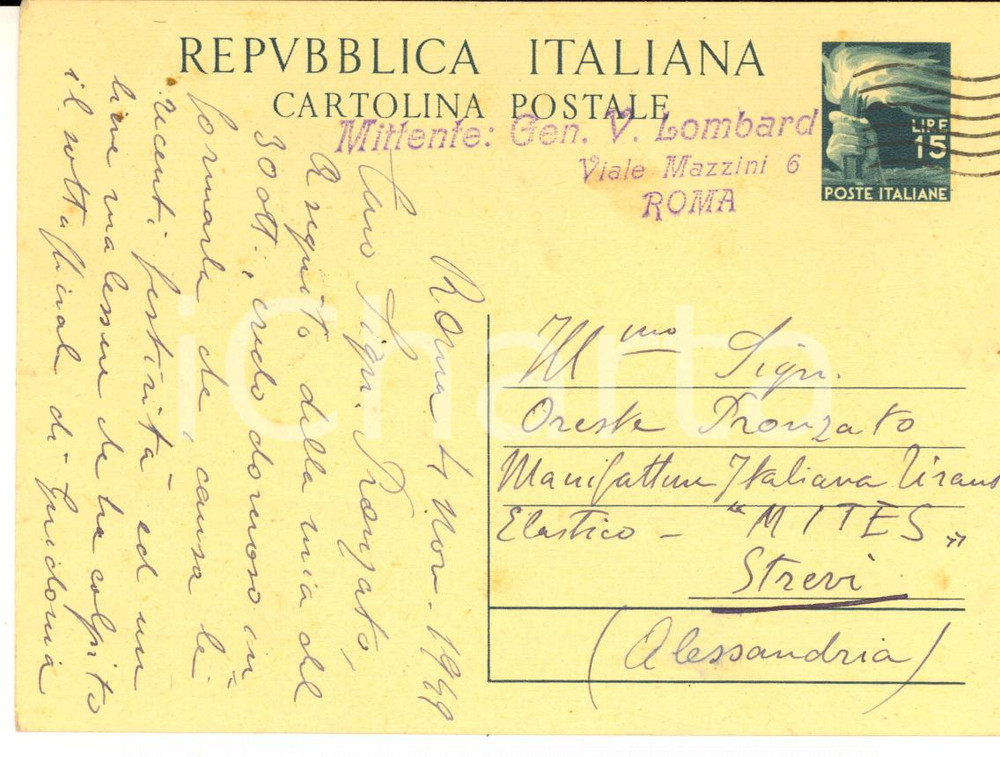 REPVBBLICA ITALIANA
CARTOLINA POSTALE
LIRE
15
POSTE ITALIANE
Mittente: Gen. V. Lombard
Viale Mazzini 6
ROMA
Ill mo Sign.
Oreste Pronzato
Manifattura Italiana
Elastico - "MITES"
Strevi
(Alessandria)
Roma 4 Nov. 1949
Caro Sign. Pronzato,
A seguito della mia del
30 ott. credo doveroso in
formarla che, causa le
recenti festività ed un
lieve malessere che ha colpito
il sottufficiale di Guidonia
iCharta